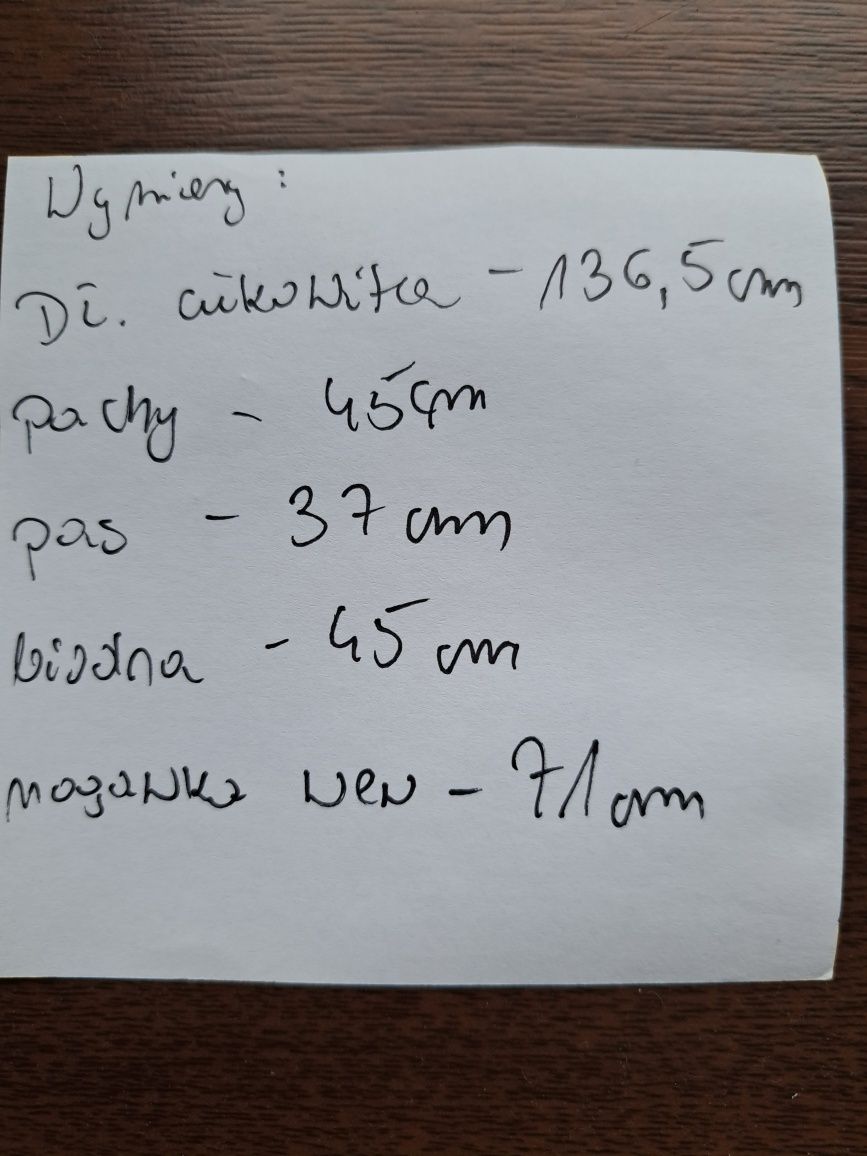 Wymiary:
Dł. całkowita - 136,5cm
pachy - 45cm
pas - 37cm
biodra - 45cm
nogawka wew - 71cm